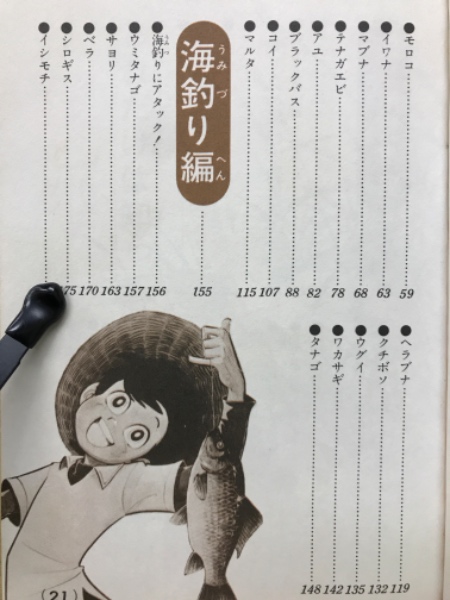 ●モロコ……59
●イワナ……63
●マブナ……68
●テナガエビ……78
●アユ……82
●ブラックバス……88
●コイ……107
●マルタ……115
●ヘラブナ……119
●クチボソ……132
●ウグイ……135
●ワカサギ……142
●タナゴ……148
海釣り編……155
うみづ へん
●海釣りにアタック!……156
うみづ
●ウミタナゴ……157
●サヨリ……163
●ベラ……170
●シロギス……75
●イシモチ……
(21)